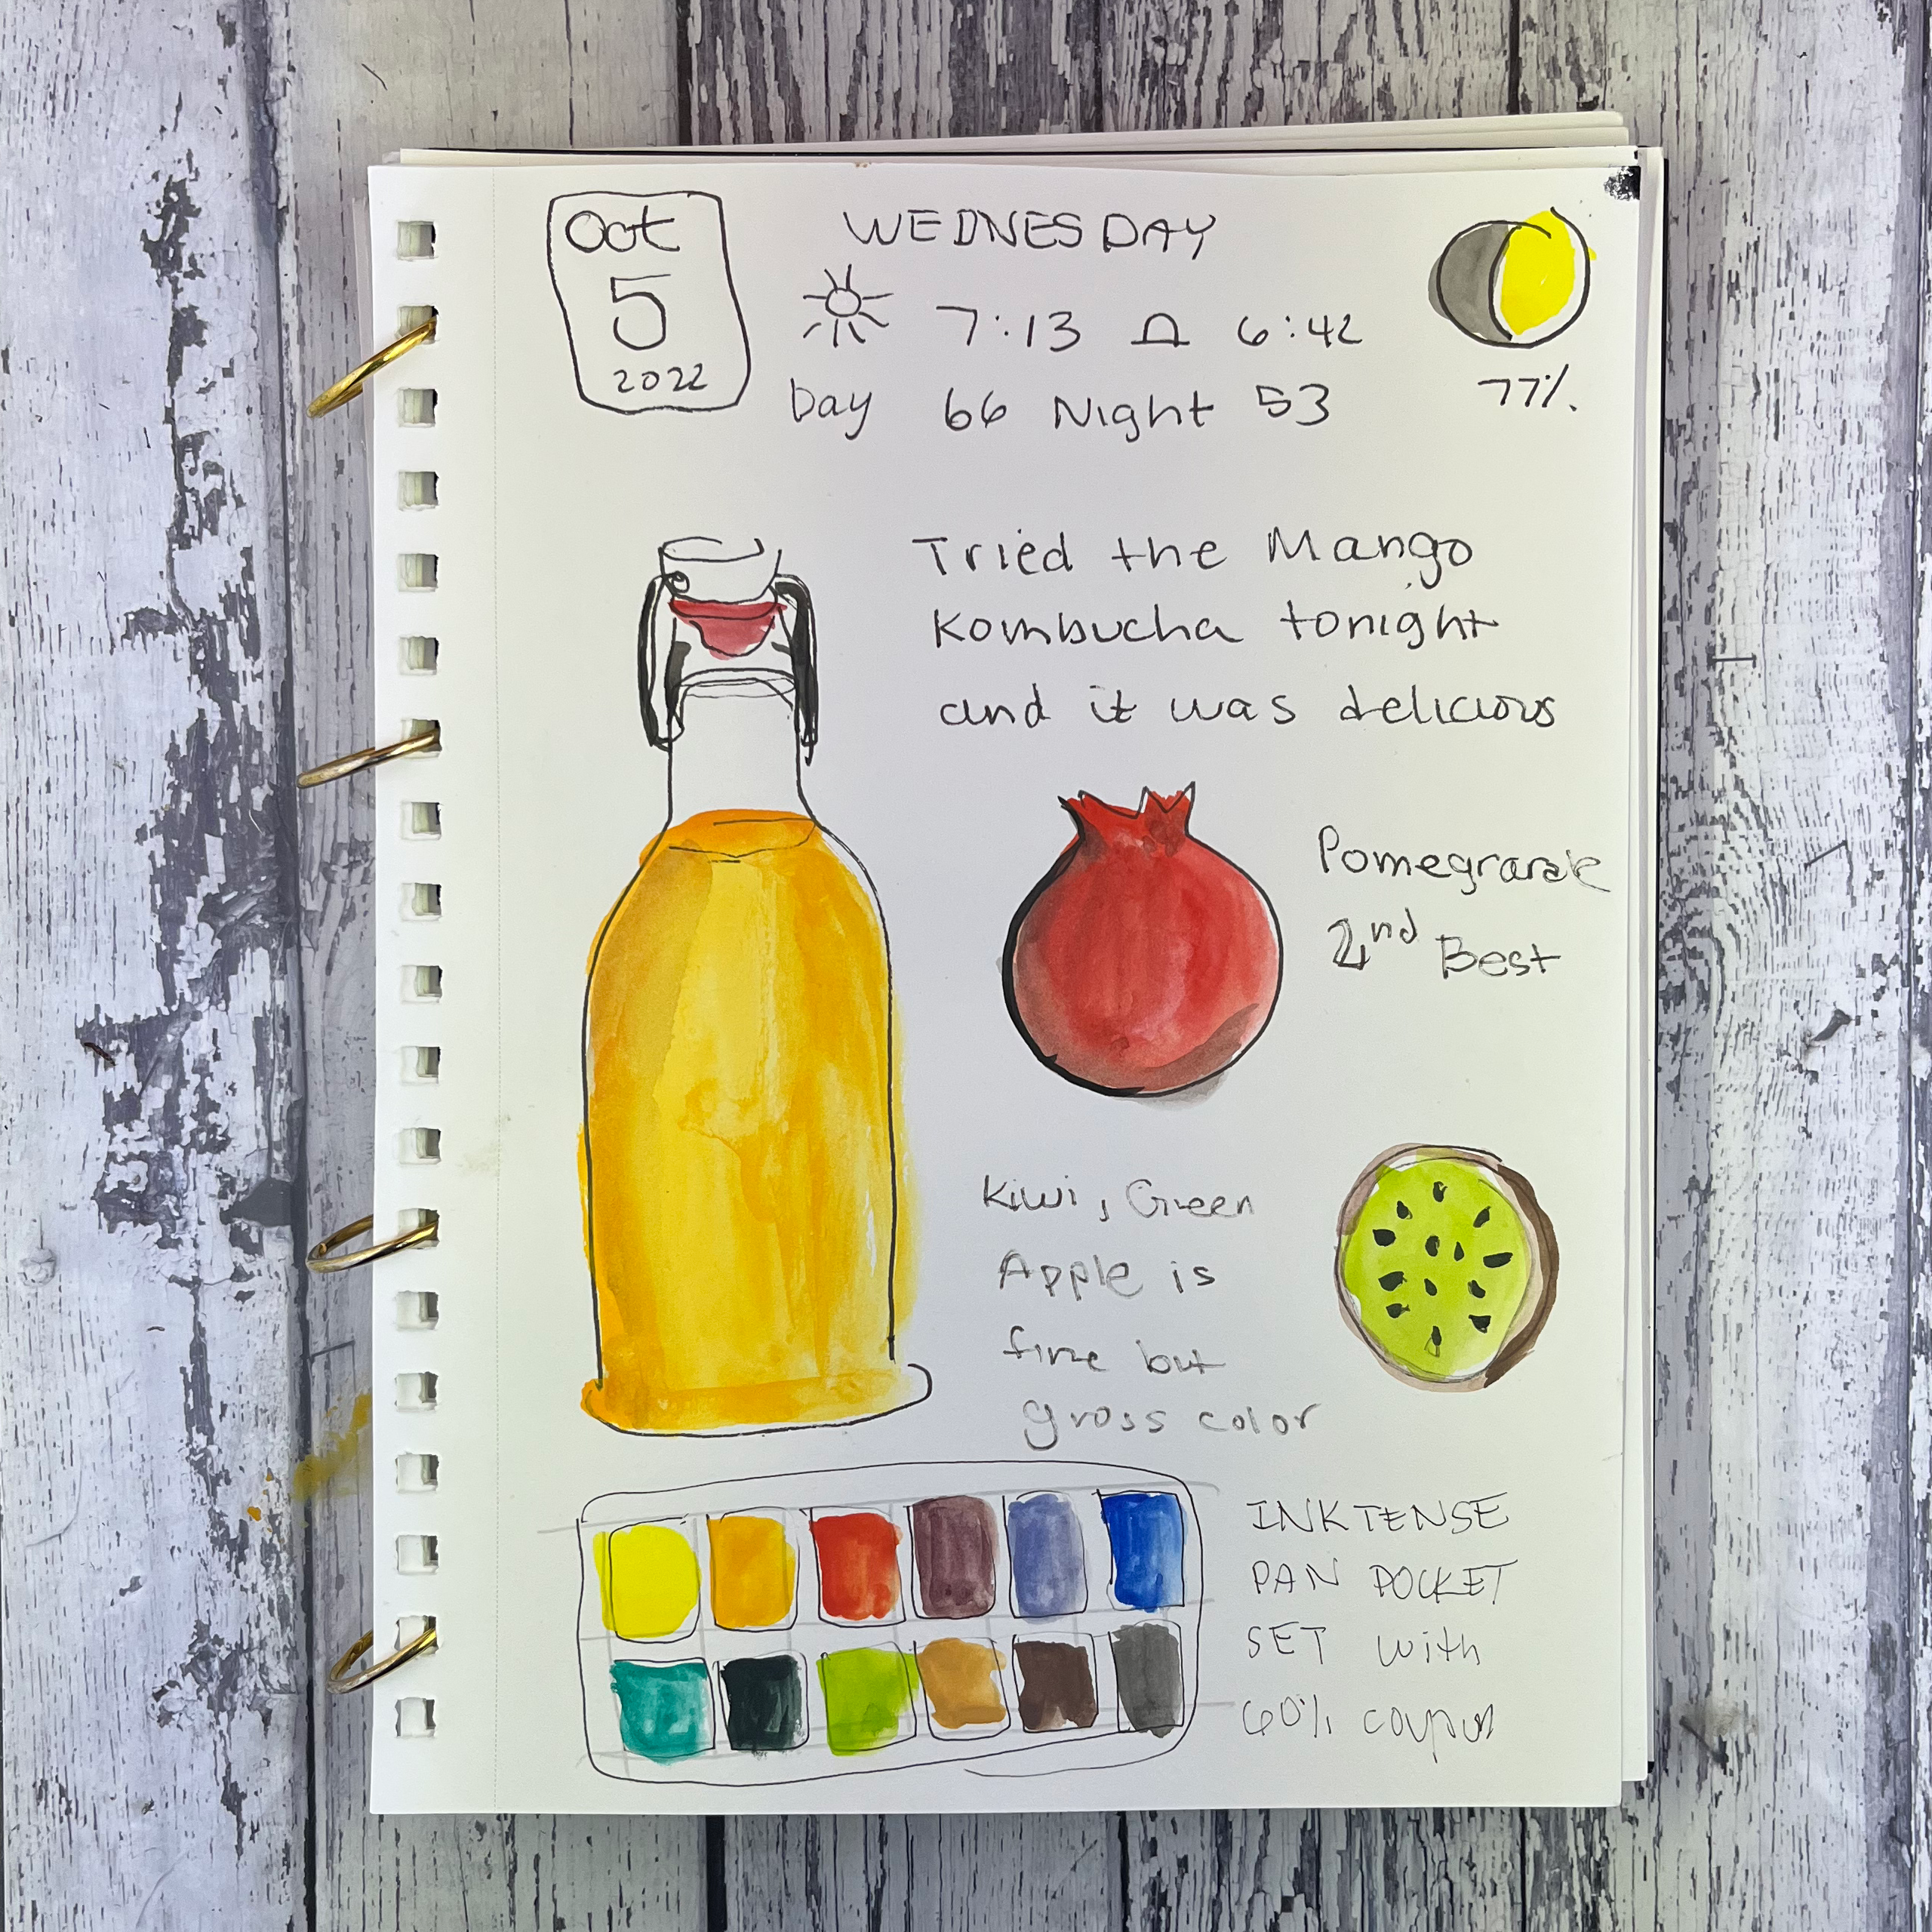 Oct
5
2022
WEDNESDAY
7:13 6:42
Day 66 Night 53
77%
Tried the Mango
Kombucha tonight
and it was delicious
Pomegranate
2nd Best
Kiwi, Green
Apple is
fine but
gross color
INKTENSE
PAN POCKET
SET with
60% coupon